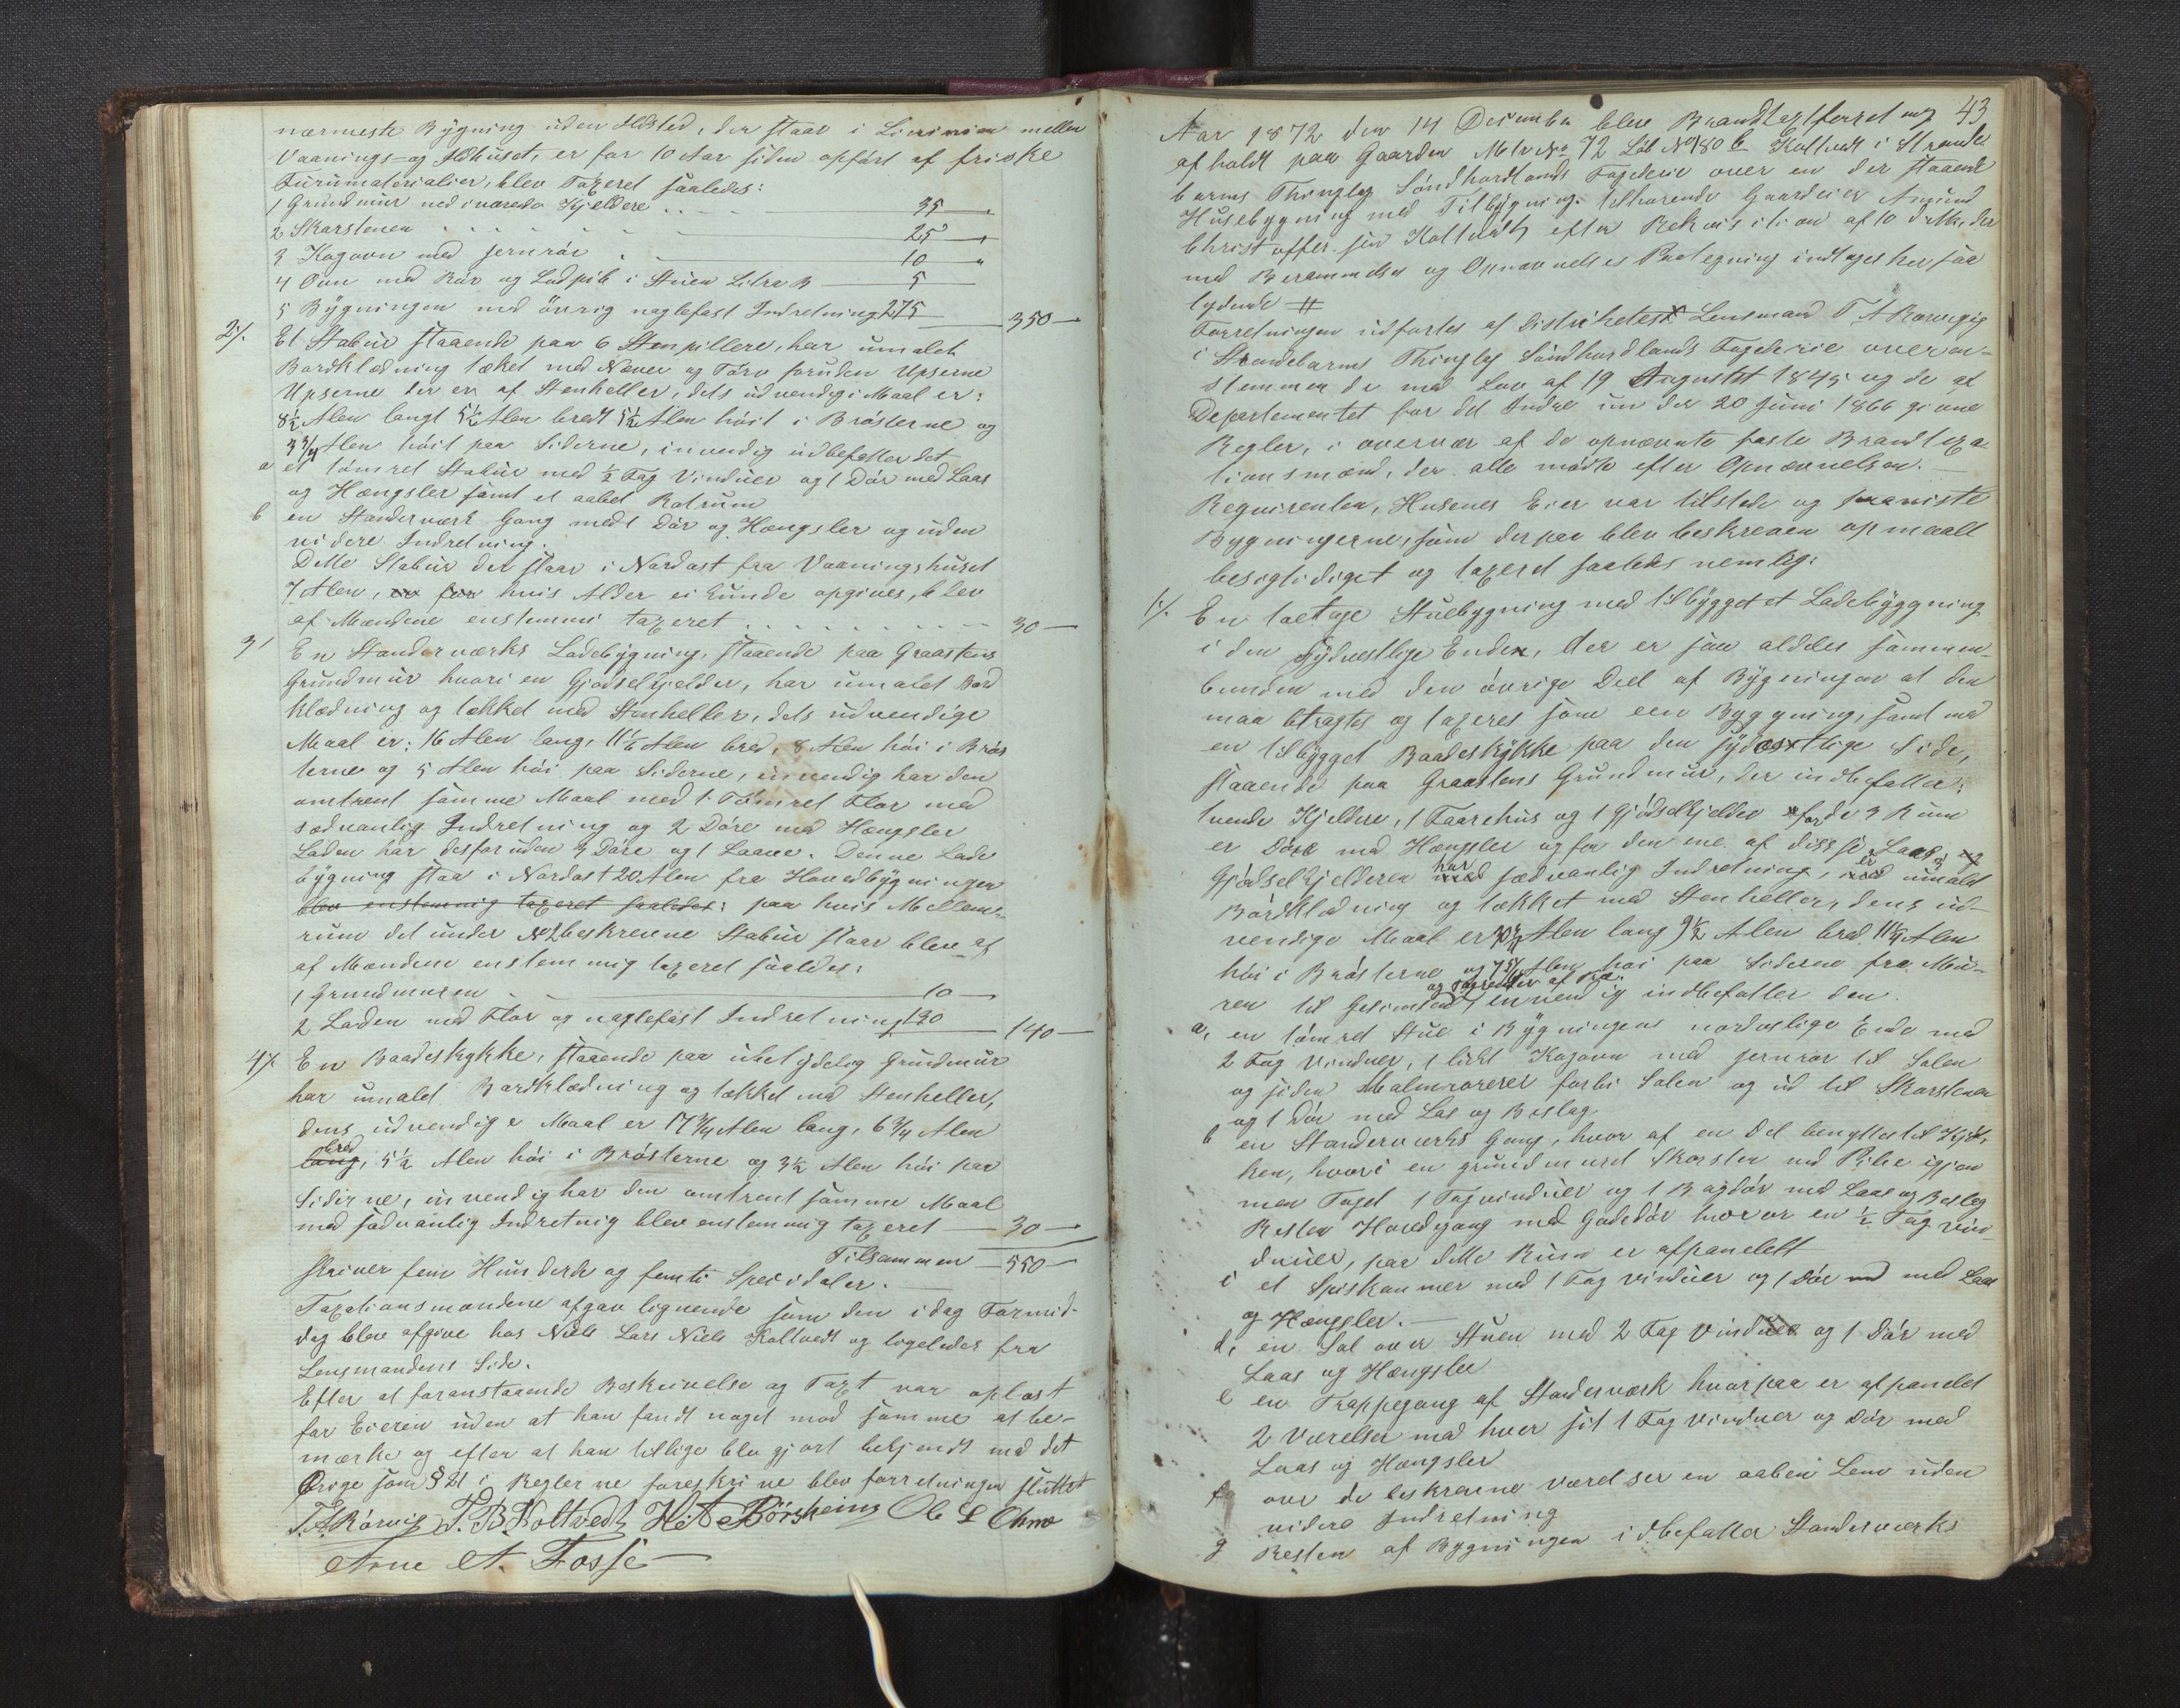 nærmeste Bygning uden Ildsted, der staar i Linien mellem
Vaanings- og Ildhuset, er for 10 Aar siden opført af friske
Furumaterialier, blev Taxeret saaledes:
1 Grundmur med iværende Kjeldere 35 —
2 Skorstenen 25 "
3 Kogovn med Jernrør 10 "
4 Ovn med Rør og Ladpibe i Stuen Litra B 5
5 Bygningen med øvrig naglefast Indretning 275 350 —
2/. Et Stabur staaende paa 6 Stenpillere, har umalet
Bordklædning tæket med Næver og Tørv foruden Upserne
Upserne der er af Stenheller, dets udvendige Maal er:
8½ Alen langt 5½ Alen bredt 5½ Alen høit i Brøsterne og
3¾ Alen høit paa Siderne, invendig indbefatter det
a et tømret Stabur med ½ Fag Vinduer og 1 Dør med Laas
og Hængsler samt et aabet Rotrum
b en Standerværk Gang med 1 Dør og Hængsler og uden
videre Indretning.
Dette Stabur der staar i Nordost fra Vaaningshuset
7 Alen, er for hvis Alder ei kunde opgives, blev
af Mændene enstemmi taxeret 30 —
3/ En Standerværks Ladebygning, staaende paa Graastens
Grundmur hvori en Gjødselkjelder, har umalet Bord
klædning og tækket med Stenheller, dets udvendige
Maal er: 16 Alen lang, 11½ Alen bred, 8 Alen høi i Brøs
terne og 5 Alen høi paa Siderne, invendig har den
omtrent samme Maal med 1 Tømret Flor med
sædvanlig Indretning og 2 Døre med Hængsler
Laden har desforuden 3 Døre og 1 Laave. Denne Lade
bygning staa i Nordost 20 Alen fra Hovedbygningen
blev enstemmig taxeret saaledes: paa hvis Mellem-
rum det under No 2 beskrevne Stabur staar blev af
af Mændene enstemmig taxeret saaledes:
1 Grundmuren 10 —
2 Laden med Flor og naglefast Indretning 130 140 —
4/. En Baadeskykke, staaende paa ubetydelig Grundmur
har umalet Bordklædning og tækket med Stenheller,
dens udvendige Maal er 17¾ Alen lang, 6¾ Alen
lang, bred 5½ Alen høi i Brøsterne og 3½ Alen høi paa
Siderne, invendig har den omtrent samme Maal
med sædvanlig Indretnig blev enstemmig taxeret — 30 —
Tilsammen — 550 —
skriver fem Hunderde og femti Speciedaler. —
Taxationsmændene afgav lignende som den i dag Formid-
dag blev afgive hos Niels Lars Niels Koltvedt og ligeledes fra
Lensmandens Side.
Efter at foranstaaende Beskrivelse og Taxt var oplæst
for Eieren uden at han fandt noget mod samme at be-
mærke og efter at han tillige blev gjort bekjendt med det
Øvrige som § 21 i Reglerne foreskrive blev forretningen sluttet
T. A. Rørvig T. B. Koltvedt H. A. Börsheim Ole L Ohme
Arne A. Fosse —
43
Aar 1872 den 14 December blev Brandtaxtforretning
afholdt paa Gaarden Mtr No 72 Løb No 180 b Koltvedt i Strande
barms Thinglag Søndhordlands Fogderie over en der staaende
Husebygning med Tilbygning tilhørende Gaardeier Amund
Christoffersen Koltvedt efter Rekvisition af 10 d Mk, der
med Berammelse og Opnævnelses Paategning indtages her saa
lydende #
Forretningen udførtes af Distriktets Lensmand T A Rørvig
i Strandebarms Thinglag Søndhordlands Fogderie overen-
stemmende med Lov af 19 Augustst 1845 og de af
Departementet for det Indre under 20 Juni 1866 givne
Regler, i overvær af de opnævnte faste Brandtaxa-
tionsmænd, der alle mødte efter Opnævnelsen. —
Reqvirenten, Husenes Eier var tilstede og paaviste
Bygningerne, som derpaa blev beskreven opmaalt
besigtidiget og taxeret saaledes nemlig:
1/. En 1 etage Stuebygning med tilbygget et Ladebyggning
i den Sydvestlige Enden, der er saa aldeles sammen-
bunden med den øvrige Deel af Bygningen at den
maa betragtes og taxeres som een Byggning, samt med
en tilbygget Baadeskykke paa den sydøstlige Side,
staaende paa Graastens Grundmur, der indbefatter:
tvende Kjeldere, 1 Faarehus og 1 Gjødselkjelder for de 3 Rum
er Døre med Hængsler og for den ene af disse Laas
Gjødselkjelderen med har sædvanlig Indretning, er umalet
Bordklædning og tækket med Stenheller, dens ud-
vendige Maal er 30¾ Alen lang 9½ Alen bred 11¼ Alen
høi i Brøsterne og 7¾ Alen høi paa Siderne fra Mu-
ren til Gesimsen og Tagrender af Træ. invendig indbefatter den.
a, en tømret Stue i Bygningens nordostlige Ende med
2 Fag Vinduer, 1 lidet Kogovn med Jernrør til Salen
og siden Malmrørerer forbi Salen og ud til Skorstenen
og 1 Dør med Las og Beslag
b en Standerværks Gang, hvor af en Del benyttes til Kjøk-
ken, hvori en grundmuret Skorsten med Pibe igjen
men Taget 1 Fag vinduer og 1 Bagdør med Laas og Beslag
Resten Hovedgang med Gadedør hvor over en ½ Fag vin-
duuer, paa dette Rum er afpanelett
c et Spiskammer med 1 Fag vinduer og 1 Dør med med Laas
og Hængsler. —
d, en Sal over Stuen med 2 Fag Vinduer og 1 Dør med
Laas og Hængsler
e en Trappegang af Standerværk hvorpaa er afpanelet
2 Værelser med hver sit 1 Fag vinduer og Dør med
Laas og Hængsler
f over de beskrevne værelser en aaben Lem uden
videre Indretning
g Resten af Bygningen idbefatter Standerværks